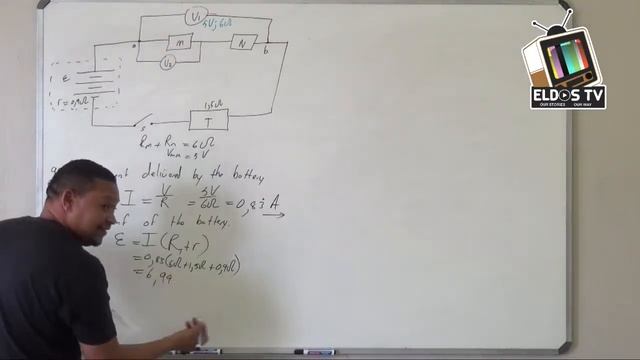 V1
5V; 6Ω
a
M
N
b
V2
ε
r = 0,9Ω
1,5Ω
T
S
Rm + Rn = 6Ω
5V
delivered by the battery
I = V/R = 5V/6Ω = 0,83 A
of the battery.
ε = I (R + r)
= 0,83(6Ω+1,5Ω+0,9Ω)
= 6,99
ELDOS TV
OUR STORIES OUR WAY